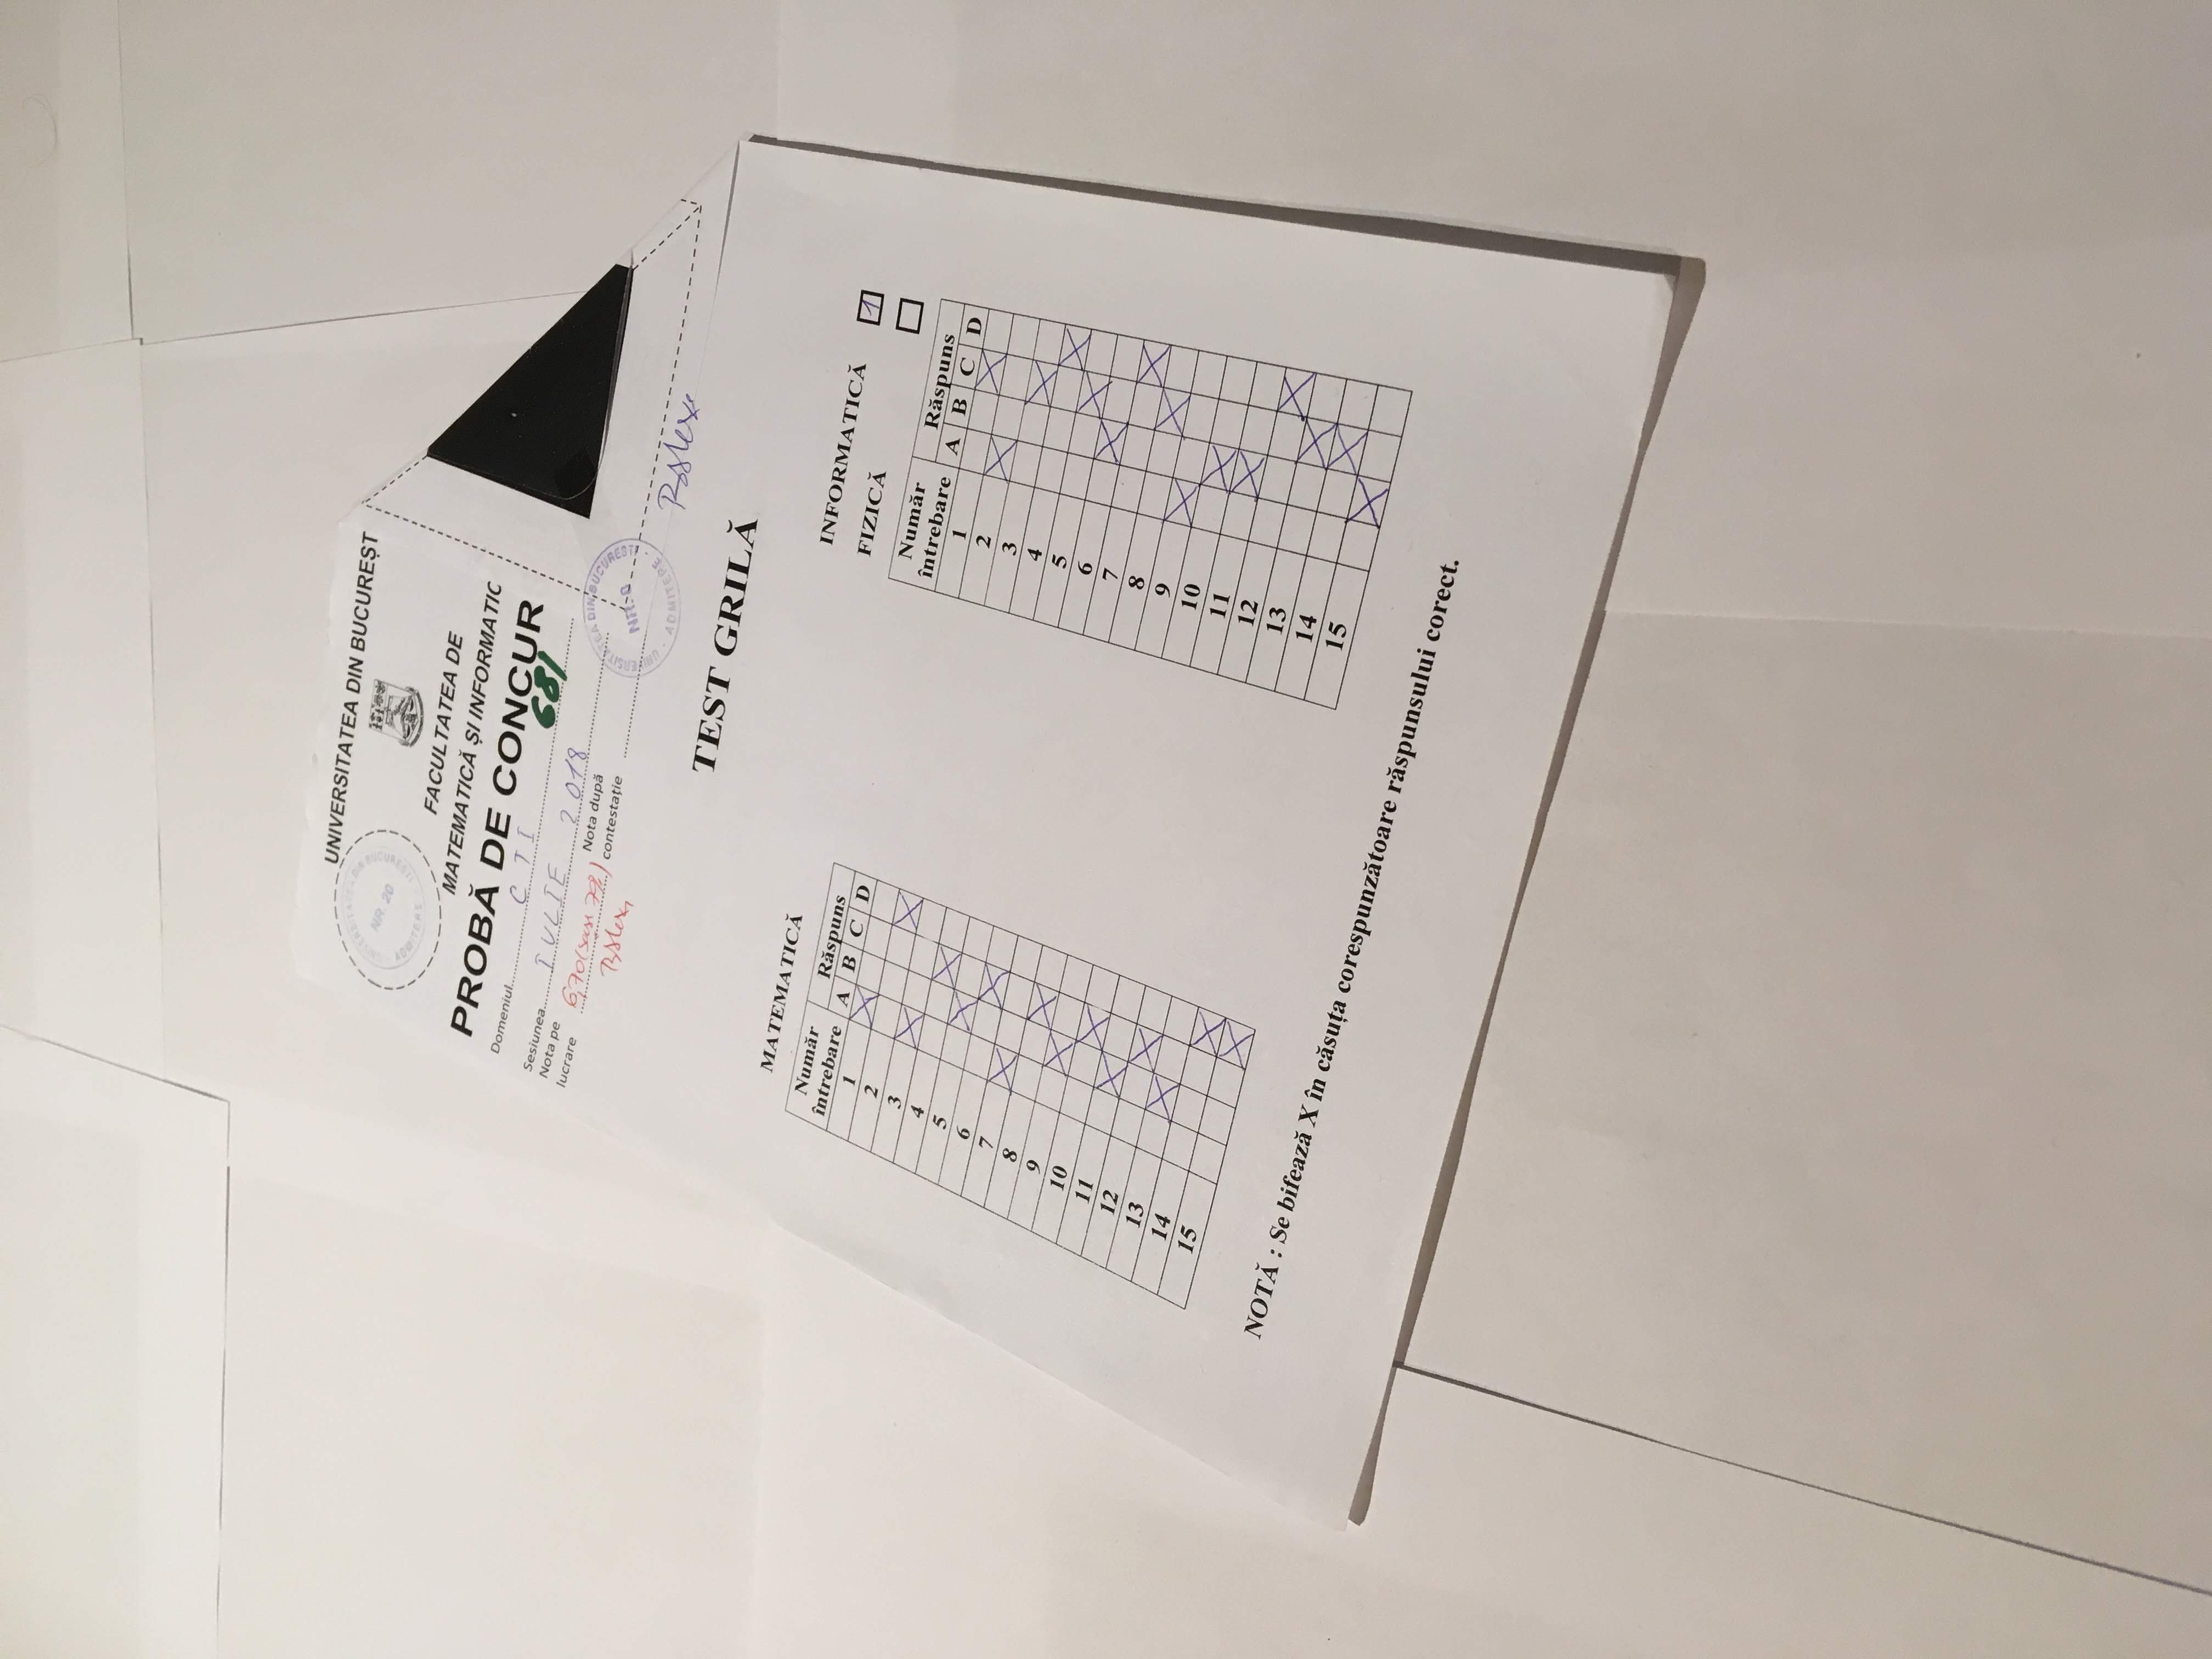 UNIVERSITATEA DIN BUCUREȘT
UNIVERSITATEA DIN BUCUREȘTI
NR. 20
ADMITERE
FACULTATEA DE
MATEMATICĂ ȘI INFORMATIC
PROBĂ DE CONCUR
Domeniul CTI
681
Sesiunea IULIE 2018
Nota pe lucrare 6,70
Nota după contestație
UNIVERSITATEA DIN BUCUREȘTI
ADMITERE
TEST GRILĂ
MATEMATICĂ
Număr întrebare Răspuns
A B C D
1 X
2 X
3 X
4 X
5 X
6 X
7 X
8 X
9 X
10 X
11 X
12 X
13 X
14 X
15 X
INFORMATICĂ 1
FIZICĂ
Număr întrebare Răspuns
A B C D
1 X
2 X
3 X
4 X
5 X
6 X
7 X
8 X
9 X
10 X
11 X
12 X
13 X
14 X
15 X
NOTĂ : Se bifează X în căsuța corespunzătoare răspunsului corect.